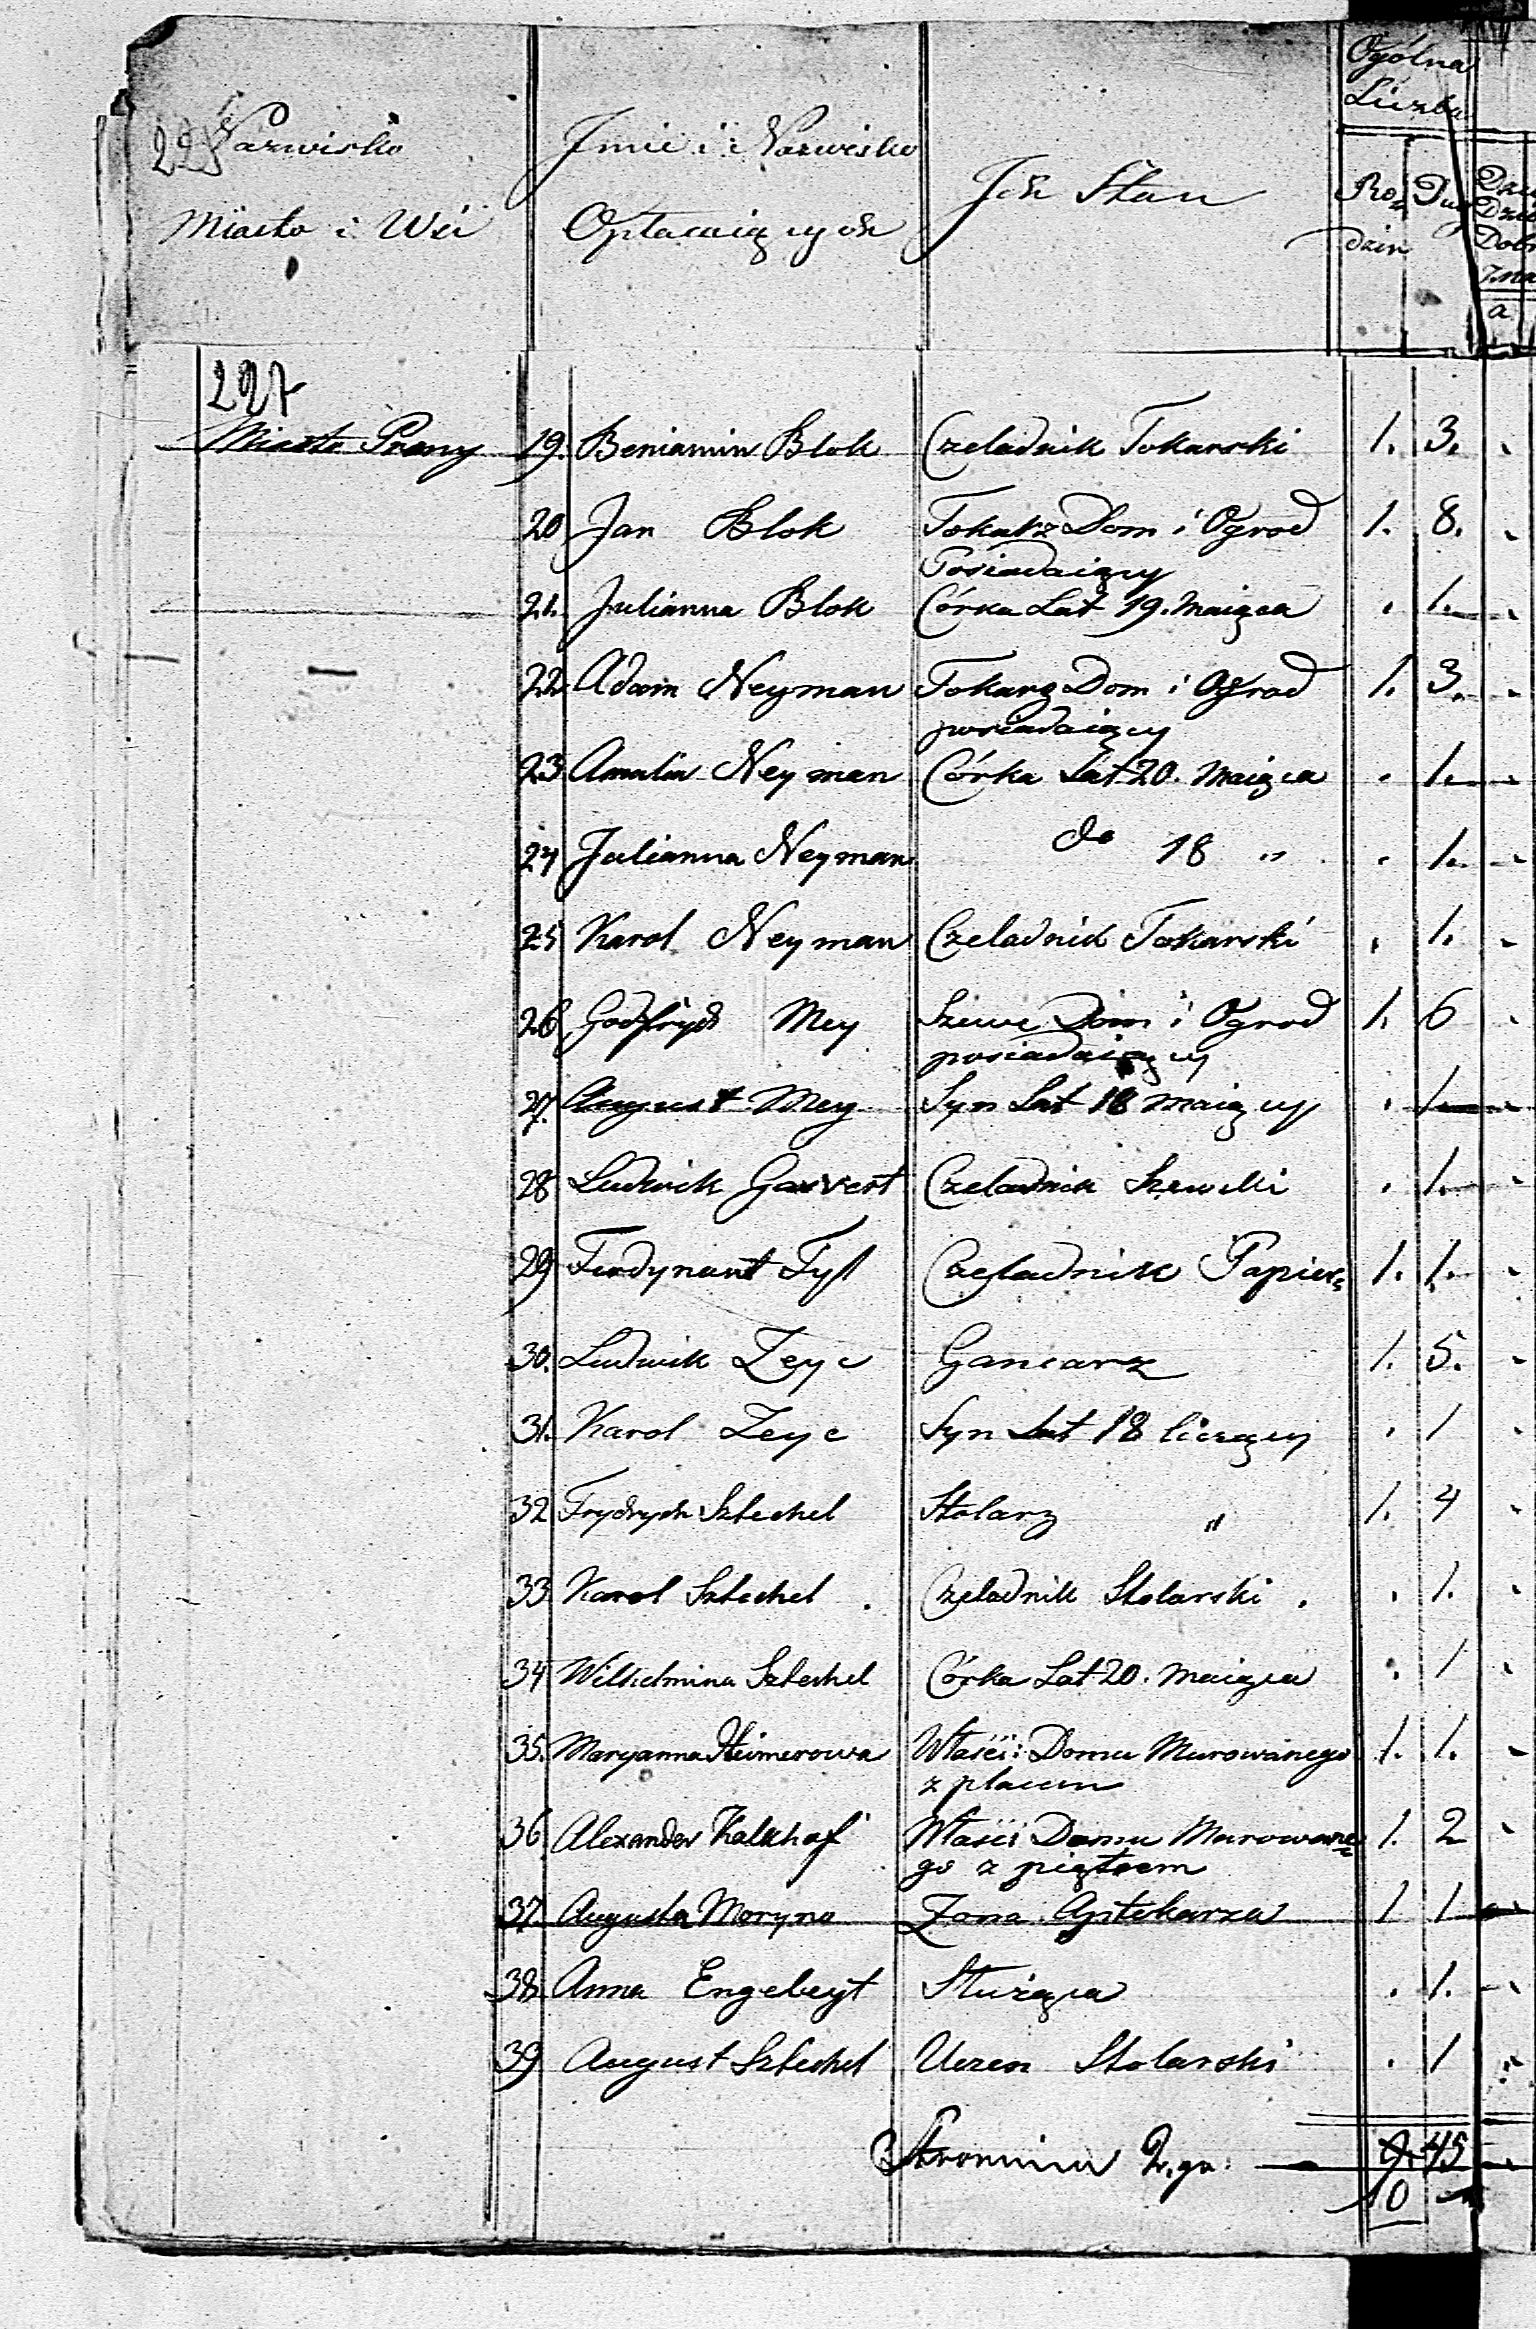 Ogólna
Liczba
225
Nazwisko
Miasta i Wsi
Jmie i Nazwisko
Opłacaiących
Jch Stan
Ro=
dzin
Dusz
a
227
Miasto Preny
19. Beniamin Blok Czeladnik Tokarski 1. 3.
20 Jan Blok Tokarz Dom i Ogrod 1. 8.
Posiadaiący
21. Julianna Blok Córka Lat 19. maiąca . 1.
22 Adam Neyman Tokarz Dom i Ogrod 1. 3.
posiadaiący
23 Amalia Neyman Córka Lat 20. maiąca . 1.
24 Julianna Neyman do 18 " . 1.
25 Karol Neyman Czeladnik Tokarski . 1.
26 Godfryd Mey Szewc Dom i Ogrod 1. 6
posiadaiący
27. August Mey Syn Lat 18 maiący . 1.
28 Ludwik Gawert Czeladnik Szewcki . 1.
29 Ferdynant Tyl Czeladnik Papier= 1. 1.
30. Ludwik Zeyc Gancarz 1. 5.
31. Karol Zeyc Syn Lat 18 liczący . 1
32 Frydrych Sztechel Stolarz " 1. 4
33 Karol Sztechel . Czeladnik Stolarski . . 1.
34 Wilhelmina Sztechel Córka Lat 20. maiąca . 1
35. Maryanna Właści: Domu Murowanego 1. 1.
z placem
36 Alexander Kalkhof Właści Domu Murowane=
go z piętrem 1. 2
37. Augusta Moryno Zona Aptekarza 1 1
38. Anna Engebeyt Służąca . 1.
39 August Sztechel Uczen Stolarski . 1
Stronnica 2.ga: 9. 45
10